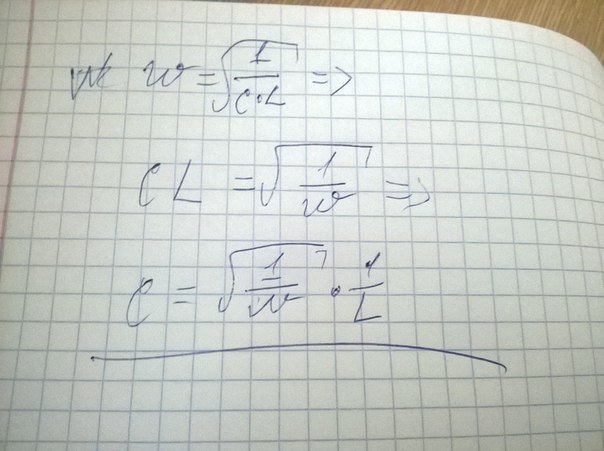 w = √(1/(C·L)) =>
CL = √(1/w) =>
C = √(1/w) · 1/L